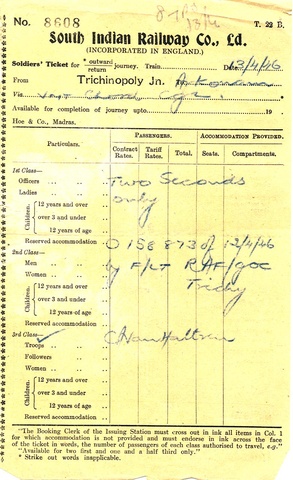 No. 8608
T. 22 B.
South Indian Railway Co., Ld.
(INCORPORATED IN ENGLAND.)
Soldiers' Ticket for * outward / return journey. Train Date 13/4/46
From Trichinopoly Jn. to
Via
Available for completion journey upto 19 .
Hoe & Co., Madras.
Particulars. PASSENGERS. ACCOMMODATION PROVIDED.
Contract Rates. Tariff Rates. Total. Seats. Compartments.
1st Class—
Officers Two Seconds
Ladies only
Children. 12 years and over
over 3 and under
12 years of age
Reserved accommodation 0158873 of 12/4/46
2nd Class—
Men by F/LT RAF/GOC
Women Trichy
Children. 12 years and over
over 3 and under
12 years of age
Reserved accommodation
3rd Class—
Troops
Followers
Women
Children. 12 years and over
over 3 and under
12 years of age
Reserved accommodation
"The Booking Clerk of the Issuing Station must cross out in ink all items in Col. 1
for which accommodation is not provided and must endorse in ink across the face
of the ticket in words, the number of passengers of each class authorised to travel, e.g."
"Available for two first and one and a half third only."
* Strike out words inapplicable.